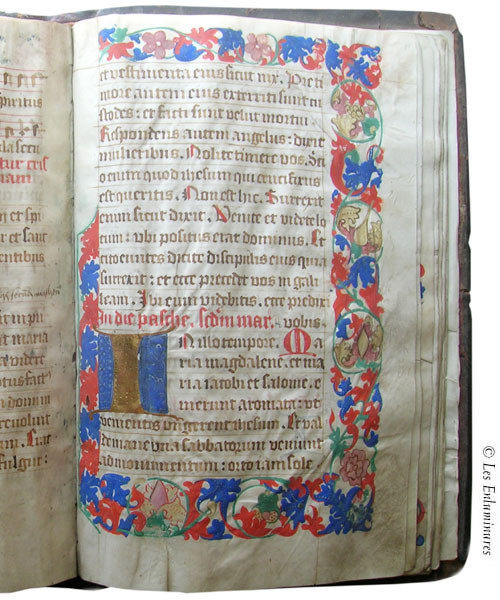 piritus
la secu
et spi
et sanc
entibus
in pu
maria
videre
otus fact
a domini
revolvit
fulgur:
et vestimenta eius sicut nix. Pre ti
more autem eius exterriti sunt cu
stodes: et facti sunt velut mortui.
Respondens autem angelus: dixit
mulieribus. Nolite timere vos. Sci
o enim quod ihesum qui crucifixus
est queritis. Non est hic. Surrexit
enim sicut dixit. Venite et videte lo
cum: ubi positus erat dominus. Et
cito euntes dicite discipulis eius quia
surrexit: et ecce precedet vos in gali
leam. Ibi eum videbitis. ecce predixi
In die pasche. scdm mar. vobis.
In illo tempore. Ma
ria magdalene. et ma
ria iacobi et salome. e
merunt aromata: ut
venientes ungerent ihesum. Et val
de mane una sabbatorum veniunt
ad monumentum: orto iam sole.
© Les Enluminures